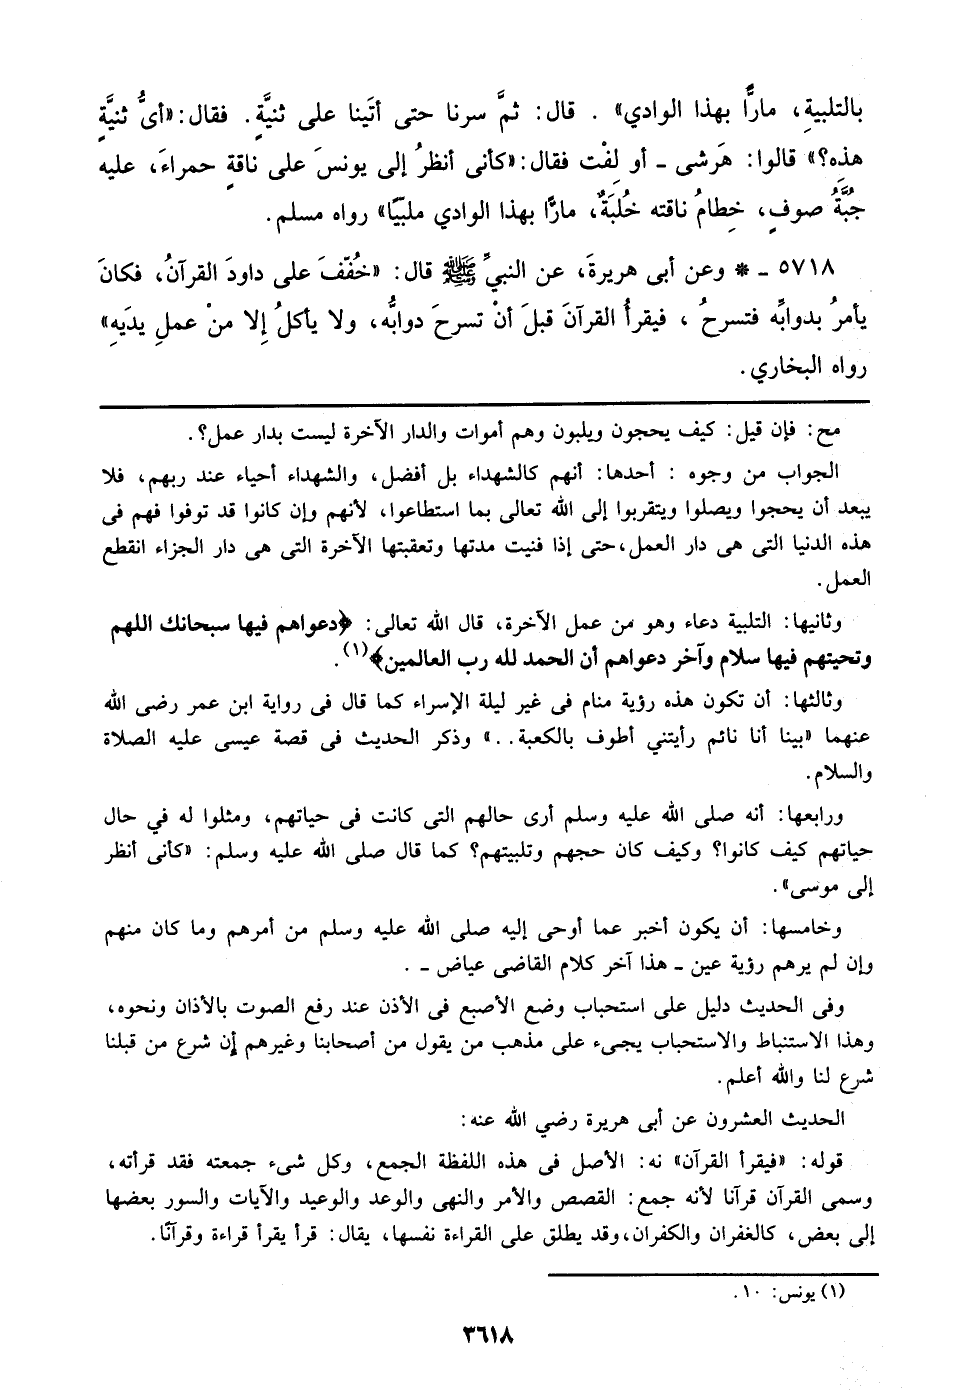 بالتلبيةِ، مارًّا بهذا الوادي» . قال: ثمَّ سرنا حتى أتَينا على ثنيَّةٍ. فقال: «أىُّ ثنيَّةٍ
هذه؟» قالوا: هَرشى ـ أو لِفْت فقال: «كأنى أنظرُ إلى يونسَ على ناقةٍ حمراءَ، عليه
جُبَّةُ صوفٍ، خِطامُ ناقته خُلبَةٌ، مارًّا بهذا الوادي ملبيًّا» رواه مسلم.
٥٧١٨ ـ * وعن أبى هريرةَ، عن النبيِّ ﷺ قال: «خُفّفَ على داودَ القرآنُ، فكانَ
يأمرُ بدوابِّه فتسرحُ ، فيقرأُ القرآنَ قبلَ أنْ تسرحَ دوابُّه، ولا يأكلُ إِلا منْ عملِ يدَيهِ»
رواه البخاري.
مح: فإن قيل: كيف يحجون ويلبون وهم أموات والدار الآخرة ليست بدار عمل؟.
الجواب من وجوه : أحدها: أنهم كالشهداء بل أفضل، والشهداء أحياء عند ربهم، فلا
يبعد أن يحجوا ويصلوا ويتقربوا إلى الله تعالى بما استطاعوا، لأنهم وإن كانوا قد توفوا فهم فى
هذه الدنيا التى هى دار العمل،حتى إذا فنيت مدتها وتعقبتها الآخرة التى هى دار الجزاء انقطع
العمل.
وثانيها: التلبية دعاء وهو من عمل الآخرة، قال الله تعالى: ﴿دعواهم فيها سبحانك اللهم
وتحيتهم فيها سلام وآخر دعواهم أن الحمد لله رب العالمين﴾(١).
وثالثها: أن تكون هذه رؤية منام فى غير ليلة الإسراء كما قال فى رواية ابن عمر رضى الله
عنهما «بينا أنا نائم رأيتني أطوف بالكعبة..» وذكر الحديث فى قصة عيسى عليه الصلاة
والسلام.
ورابعها: أنه صلى الله عليه وسلم أرى حالهم التى كانت فى حياتهم، ومثلوا له في حال
حياتهم كيف كانوا؟ وكيف كان حجهم وتلبيتهم؟ كما قال صلى الله عليه وسلم: «كأنى أنظر
إلى موسى».
وخامسها: أن يكون أخبر عما أوحى إليه صلى الله عليه وسلم من أمرهم وما كان منهم
وإن لم يرهم رؤية عين ـ هذا آخر كلام القاضى عياض ـ .
وفى الحديث دليل على استحباب وضع الأصبع فى الأذن عند رفع الصوت بالأذان ونحوه،
وهذا الاستنباط والاستحباب يجىء على مذهب من يقول من أصحابنا وغيرهم إن شرع من قبلنا
شرع لنا والله أعلم.
الحديث العشرون عن أبى هريرة رضي الله عنه:
قوله: «فيقرأ القرآن» نه: الأصل فى هذه اللفظة الجمع، وكل شىء جمعته فقد قرأته،
وسمى القرآن قرآنا لأنه جمع: القصص والأمر والنهى والوعد والوعيد والآيات والسور بعضها
إلى بعض، كالغفران والكفران،وقد يطلق على القراءة نفسها، يقال: قرأ يقرأ قراءة وقرآنًا.
(١) يونس: ١٠.
٣٦١٨